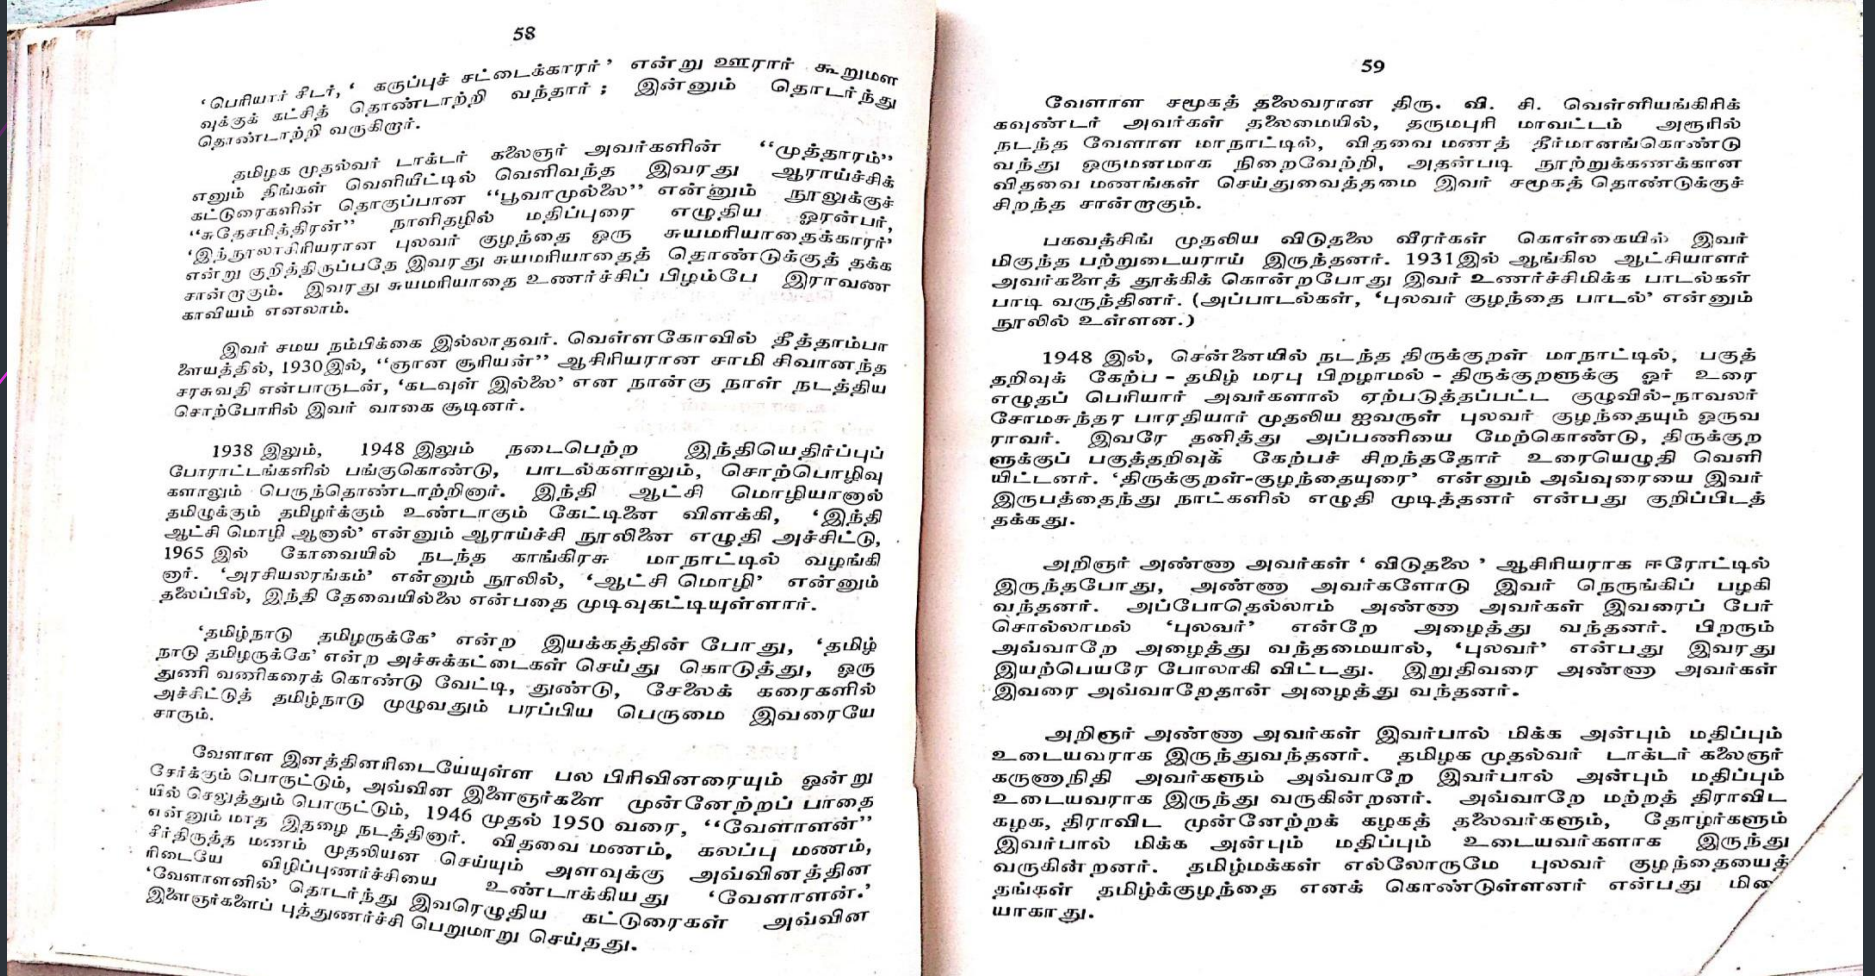 58
‘பெரியார் சீடர், ‘ கருப்புச் சட்டைக்காரர்’ என்று ஊரார் கூறுமள
வுக்குக் கட்சித் தொண்டாற்றி வந்தார் ; இன்னும் தொடர்ந்து
தொண்டாற்றி வருகிறார்.
தமிழக முதல்வர் டாக்டர் கலைஞர் அவர்களின் “முத்தாரம்”
எனும் திங்கள் வெளியீட்டில் வெளிவந்த இவரது ஆராய்ச்சிக்
கட்டுரைகளின் தொகுப்பான “பூவாமுல்லை” என்னும் நூலுக்குச்
“சுதேசமித்திரன்” நாளிதழில் மதிப்புரை எழுதிய ஓரன்பர்,
‘இந்நூலாசிரியரான புலவர் குழந்தை ஒரு சுயமரியாதைக்காரர்’
என்று குறித்திருப்பதே இவரது சுயமரியாதைத் தொண்டுக்குத் தக்க
சான்றாகும். இவரது சுயமரியாதை உணர்ச்சிப் பிழம்பே இராவண
காவியம் எனலாம்.
இவர் சமய நம்பிக்கை இல்லாதவர். வெள்ளகோவில் தீத்தாம்பா
ளையத்தில், 1930இல், “ஞான சூரியன்” ஆசிரியரான சாமி சிவானந்த
சரசுவதி என்பாருடன், ‘கடவுள் இல்லை’ என நான்கு நாள் நடத்திய
சொற்போரில் இவர் வாகை சூடினர்.
1938 இலும், 1948 இலும் நடைபெற்ற இந்தியெதிர்ப்புப்
போராட்டங்களில் பங்குகொண்டு, பாடல்களாலும், சொற்பொழிவு
களாலும் பெருந்தொண்டாற்றினார். இந்தி ஆட்சி மொழியானால்
தமிழுக்கும் தமிழர்க்கும் உண்டாகும் கேட்டினை விளக்கி, ‘இந்தி
ஆட்சி மொழி ஆனால்’ என்னும் ஆராய்ச்சி நூலினை எழுதி அச்சிட்டு,
1965 இல் கோவையில் நடந்த காங்கிரசு மாநாட்டில் வழங்கி
னார். ‘அரசியலரங்கம்’ என்னும் நூலில், ‘ஆட்சி மொழி’ என்னும்
தலைப்பில், இந்தி தேவையில்லை என்பதை முடிவுகட்டியுள்ளார்.
‘தமிழ்நாடு தமிழருக்கே’ என்ற இயக்கத்தின் போது, ‘தமிழ்
நாடு தமிழருக்கே’ என்ற அச்சுக்கட்டைகள் செய்து கொடுத்து, ஒரு
துணி வணிகரைக் கொண்டு வேட்டி, துண்டு, சேலைக் கரைகளில்
அச்சிட்டுத் தமிழ்நாடு முழுவதும் பரப்பிய பெருமை இவரையே
சாரும்.
வேளாள இனத்தினரிடையேயுள்ள பல பிரிவினரையும் ஒன்று
சேர்க்கும் பொருட்டும், அவ்வின இளைஞர்களை முன்னேற்றப் பாதை
யில் செலுத்தும் பொருட்டும், 1946 முதல் 1950 வரை, “வேளாளன்”
என்னும் மாத இதழை நடத்தினார். விதவை மணம், கலப்பு மணம்,
சீர்திருத்த மணம் முதலியன செய்யும் அளவுக்கு அவ்வினத்தின
ரிடையே விழிப்புணர்ச்சியை உண்டாக்கியது ‘வேளாளன்.’
‘வேளாளனில்’ தொடர்ந்து இவரெழுதிய கட்டுரைகள் அவ்வின
இளைஞர்களைப் புத்துணர்ச்சி பெறுமாறு செய்தது.
59
வேளாள சமூகத் தலைவரான திரு. வி. சி. வெள்ளியங்கிரிக்
கவுண்டர் அவர்கள் தலைமையில், தருமபுரி மாவட்டம் அரூரில்
நடந்த வேளாள மாநாட்டில், விதவை மணத் தீர்மானங்கொண்டு
வந்து ஒருமனமாக நிறைவேற்றி, அதன்படி நூற்றுக்கணக்கான
விதவை மணங்கள் செய்துவைத்தமை இவர் சமூகத் தொண்டுக்குச்
சிறந்த சான்றாகும்.
பகவத்சிங் முதலிய விடுதலை வீரர்கள் கொள்கையில் இவர்
மிகுந்த பற்றுடையராய் இருந்தனர். 1931இல் ஆங்கில ஆட்சியாளர்
அவர்களைத் தூக்கிக் கொன்றபோது இவர் உணர்ச்சிமிக்க பாடல்கள்
பாடி வருந்தினர். (அப்பாடல்கள், ‘புலவர் குழந்தை பாடல்’ என்னும்
நூலில் உள்ளன.)
1948 இல், சென்னையில் நடந்த திருக்குறள் மாநாட்டில், பகுத்
தறிவுக் கேற்ப – தமிழ் மரபு பிறழாமல் – திருக்குறளுக்கு ஓர் உரை
எழுதப் பெரியார் அவர்களால் ஏற்படுத்தப்பட்ட குழுவில்-நாவலர்
சோமசுந்தர பாரதியார் முதலிய ஐவருள் புலவர் குழந்தையும் ஒருவ
ராவர். இவரே தனித்து அப்பணியை மேற்கொண்டு, திருக்குற
ளுக்குப் பகுத்தறிவுக் கேற்பச் சிறந்ததோர் உரையெழுதி வெளி
யிட்டனர். ‘திருக்குறள்-குழந்தையுரை’ என்னும் அவ்வுரையை இவர்
இருபத்தைந்து நாட்களில் எழுதி முடித்தனர் என்பது குறிப்பிடத்
தக்கது.
அறிஞர் அண்ணா அவர்கள் ‘ விடுதலை ’ ஆசிரியராக ஈரோட்டில்
இருந்தபோது, அண்ணா அவர்களோடு இவர் நெருங்கிப் பழகி
வந்தனர். அப்போதெல்லாம் அண்ணா அவர்கள் இவரைப் பேர்
சொல்லாமல் ‘புலவர்’ என்றே அழைத்து வந்தனர். பிறரும்
அவ்வாறே அழைத்து வந்தமையால், ‘புலவர்’ என்பது இவரது
இயற்பெயரே போலாகி விட்டது. இறுதிவரை அண்ணா அவர்கள்
இவரை அவ்வாறேதான் அழைத்து வந்தனர்.
அறிஞர் அண்ணா அவர்கள் இவர்பால் மிக்க அன்பும் மதிப்பும்
உடையவராக இருந்துவந்தனர். தமிழக முதல்வர் டாக்டர் கலைஞர்
கருணாநிதி அவர்களும் அவ்வாறே இவர்பால் அன்பும் மதிப்பும்
உடையவராக இருந்து வருகின்றனர். அவ்வாறே மற்றத் திராவிட
கழக, திராவிட முன்னேற்றக் கழகத் தலைவர்களும், தோழர்களும்
இவர்பால் மிக்க அன்பும் மதிப்பும் உடையவர்களாக இருந்து
வருகின்றனர். தமிழ்மக்கள் எல்லோருமே புலவர் குழந்தையைத்
தங்கள் தமிழ்க்குழந்தை எனக் கொண்டுள்ளனர் என்பது மிகை
யாகாது.